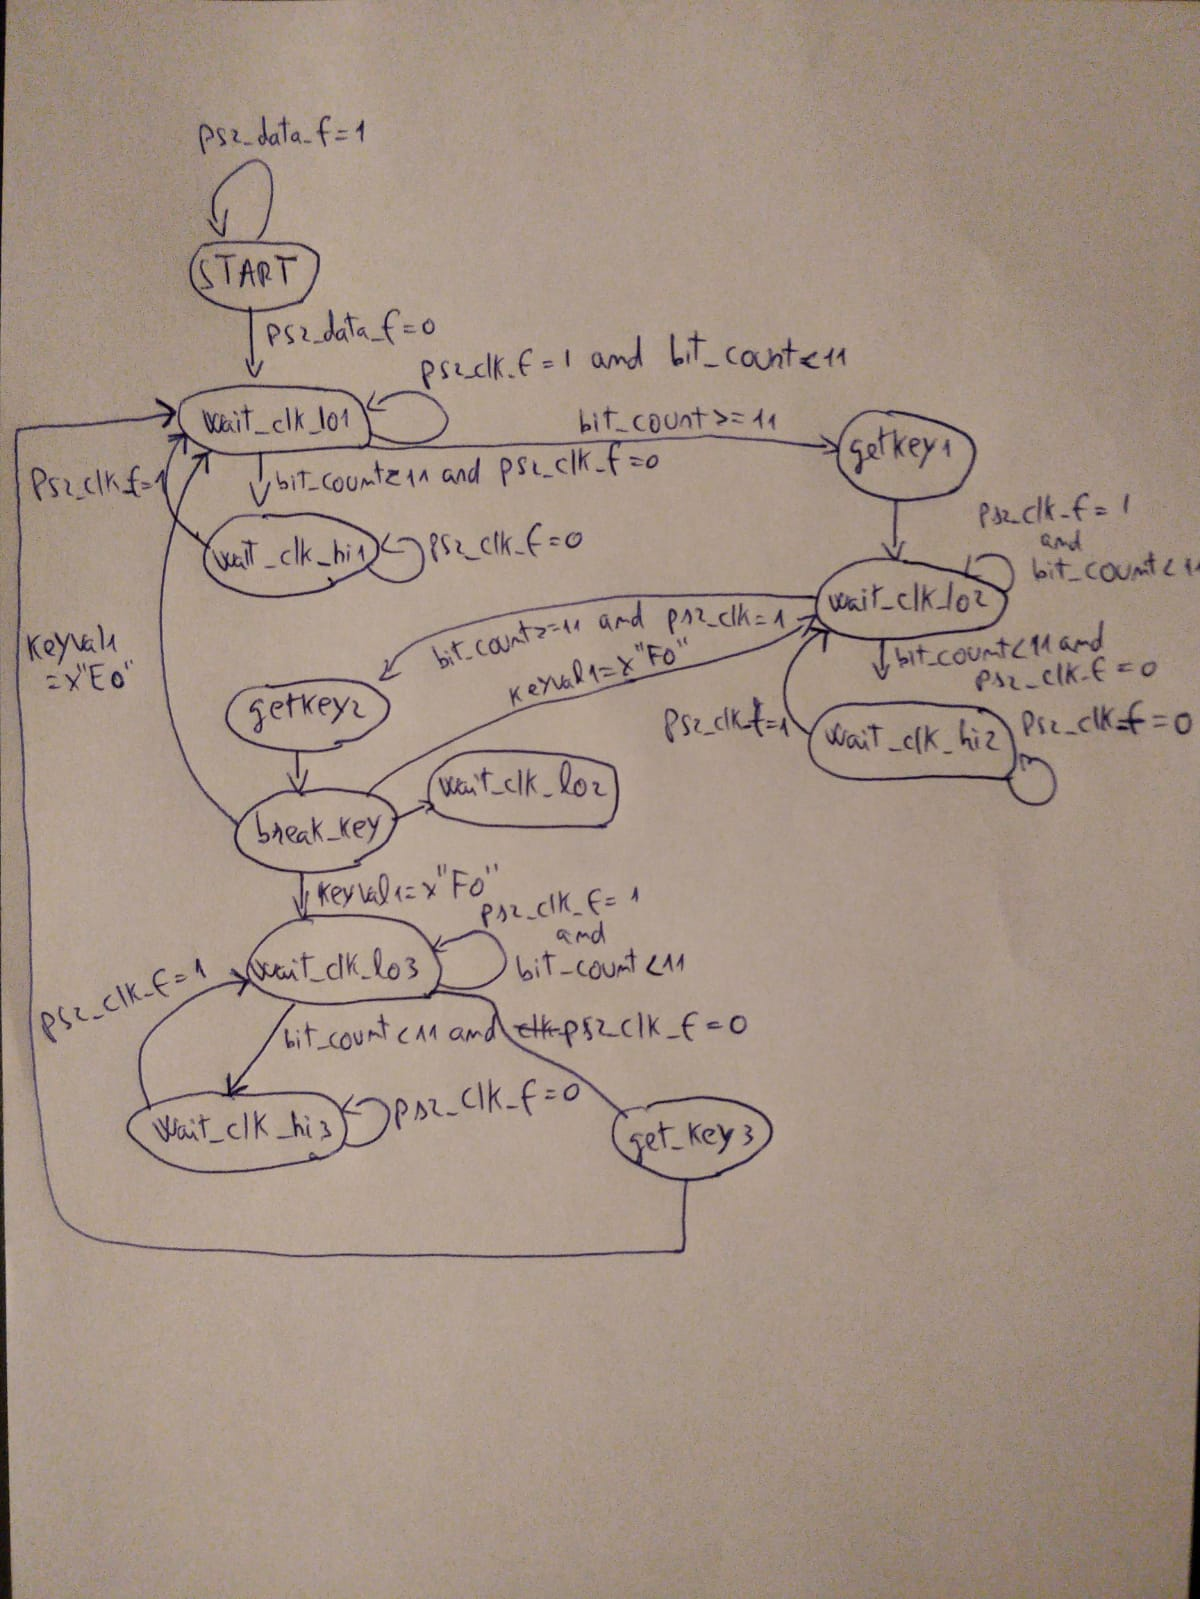 ps2_data_f=1
START
ps2_data_f=0
ps2_clk_f=1 and bit_count<11
wait_clk_lo1
bit_count>=11
getkey1
ps2_clk_f=1
bit_count<11 and ps2_clk_f=0
wait_clk_hi1
ps2_clk_f=0
ps2_clk_f=1
and
bit_count<11
wait_clk_lo2
bit_count>=11 and ps2_clk=1
bit_count<11 and
ps2_clk_f=0
keyval1
=x"E0"
keyval1=x"F0"
getkey2
ps2_clk_f=1
wait_clk_hi2
ps2_clk_f=0
wait_clk_lo2
break_key
keyval1=x"F0"
ps2_clk_f=1
and
bit_count<11
wait_clk_lo3
ps2_clk_f=1
bit_count<11 and clk ps2_clk_f=0
wait_clk_hi3
ps2_clk_f=0
get_key3